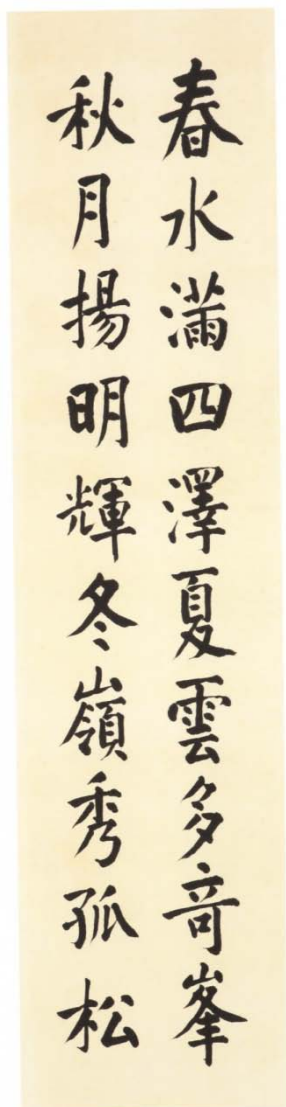 春水滿四澤夏雲多奇峯
秋月揚明輝冬嶺秀孤松